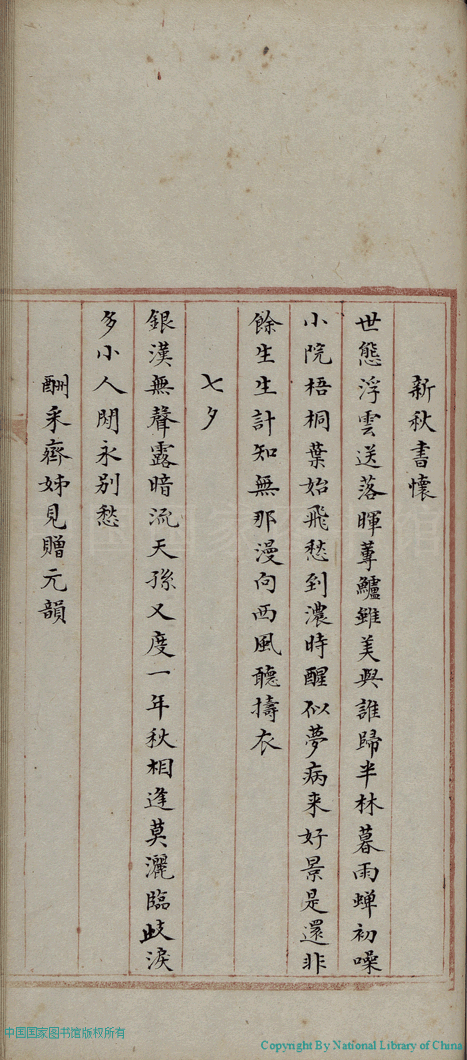 新秋書懷
世態浮雲送落暉蓴鱸雖美與誰歸半林暮雨蟬初噪
小院梧桐葉始飛愁到濃時醒似夢病来好景是還非
餘生生計知無那漫向西風聽擣衣
七夕
銀漢無聲露暗流天孫又度一年秋相逢莫灑臨歧淚
多小人閒永别愁
酬采齊姊見贈元韻
中国国家图书馆版权所有
Copyright By National Library of China